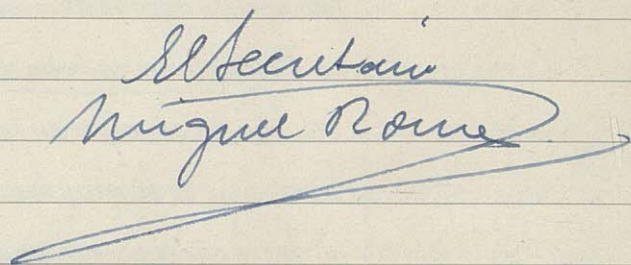 El Secretario
Miguel Rome